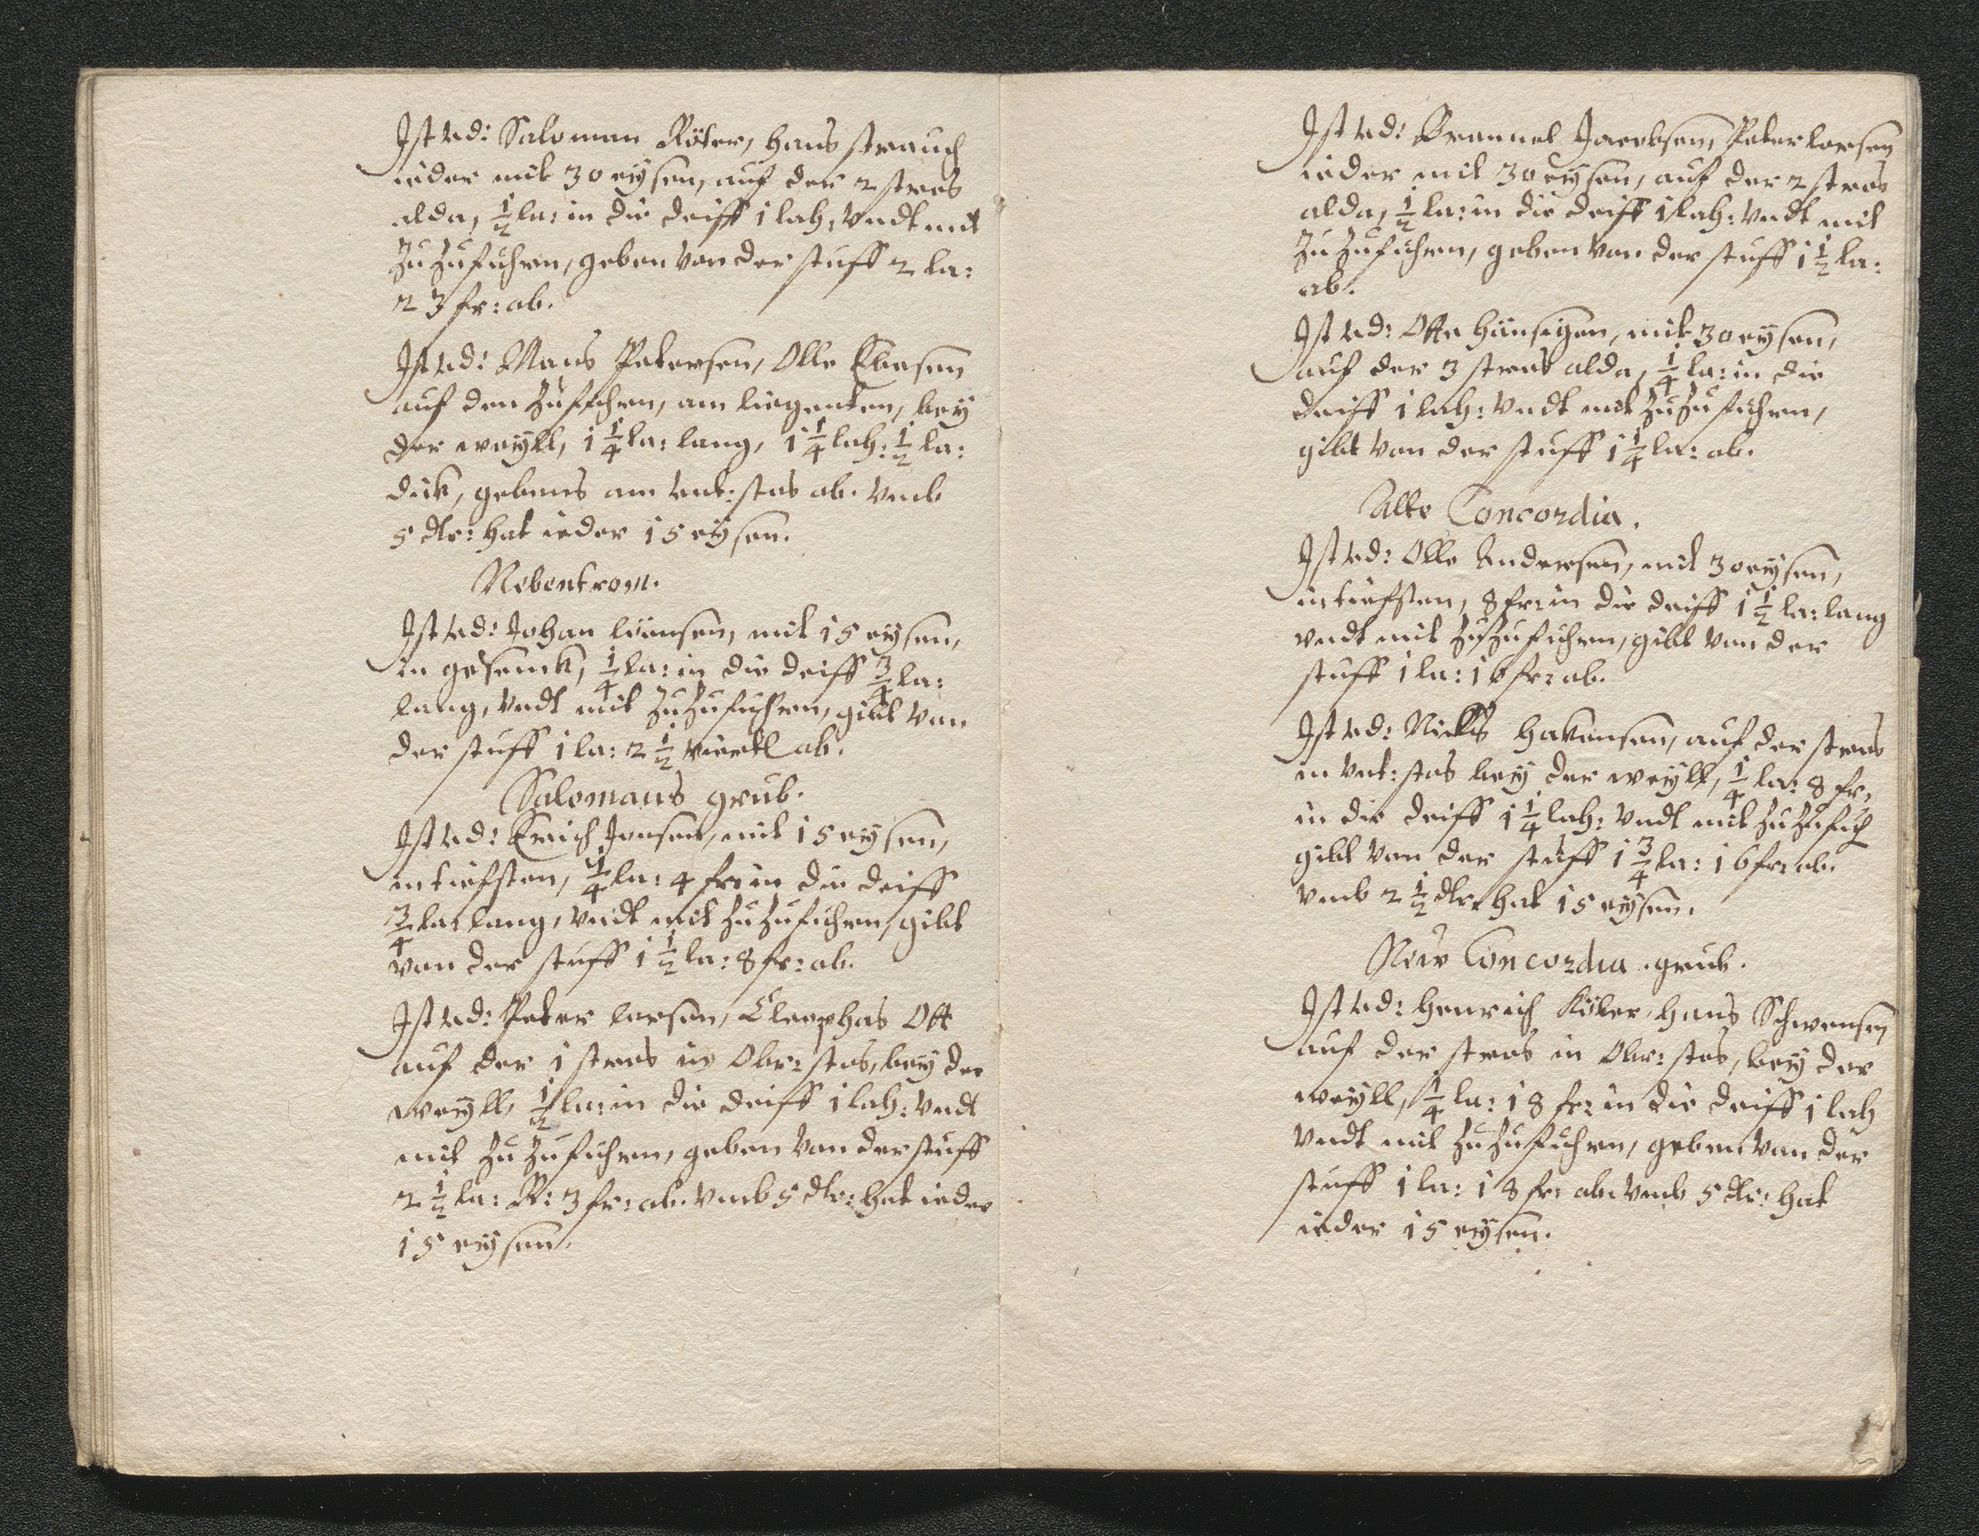 Ist ud: Saloman Röter, hans strauch
ieder mit 30 eysen, auf der 2 stros
alda, 1/2 la: in die deiff 1 lah: vndt mit
Zu Zufuhren, geben von der stuff 2 la:
23 fr: ab.
Ist ud: Mans Petersen, Olle Ebesen
auf den Zufuhren, am liegenten, bey
der weyll, 1 1/4 la: lang, 1 1/4 lah: 1/2 la:
dick, gebens am unt: stos ab. vmb
5 dlr: hat ieder 15 eysen.
Nebentrom.
Ist ud: Johan länsen, mit 15 eysen,
in gesenck, 1/4 la: in die deiff 3/4 la:
lang, vndt mit Zu Zufuhren, gibt von
der stuff 1 la: 2 1/2 viertl ab.
Salomans grub.
Ist ud: Erich Jonsen, mit 15 eysen,
in tiefsten, 1/4 la: 4 fr: in die deiff
3/4 la: lang, vndt mit Zu Zufuhren, gibt
von der stuff 1 1/2 la: 8 fr: ab.
Ist ud: Peter larsen, Cleophas Ott
auf der 1 stros in Obr: stos, bey der
weyll, 1/2 la: in die deiff 1 lah: vndt
mit Zu Zufuhren, geben von der stuff
2 1/2 la: R: 3 fr: ab. vmb 5 dlr: hat ieder
15 eysen.
Ist ud: Jacobsen, Peter larsen
ieder mit 30 eysen, auf der 2 stros
alda, 1/2 la: in die deiff 1 lah: vndt mit
Zu Zufuhren, geben von der stuff 1 1/2 la:
ab.
Ist ud: Otte hänsigen, mit 30 eysen,
auf der 3 stros alda, 1/4 la: in die
deiff 1 lah: vndt mit Zu Zufuhren,
gibt von der stuff 1 1/4 la: ab.
Alte Concordia.
Ist ud: Olle Andersen, mit 30 eysen,
in tiefsten, 8 fr: in die deiff 1 1/2 la: lang
vndt mit Zu Zufuhren, gibt von der
stuff 1 la: 16 fr: ab.
Ist ud: Niells hakensen, auf der stros
in vnt: stos bey der weyll, 1/4 la: 8 fr:
in die deiff 1 1/4 lah: vndt mit Zu Zufuh
gibt von der stuff 1 3/4 la: 16 fr: ab.
vmb 2 1/2 dlr: hat 15 eysen.
Neue Concordia grub.
Ist ud: Henrich Köler, hans Schwensen
auf der stros in Obr: stos, bey der
weyll, 1/4 la: 18 fr: in die deiff 1 lah
vndt mit Zu Zufuhren, geben von der
stuff 1 la: 18 fr: ab. vmb 5 dlr: hat
ieder 15 eysen.